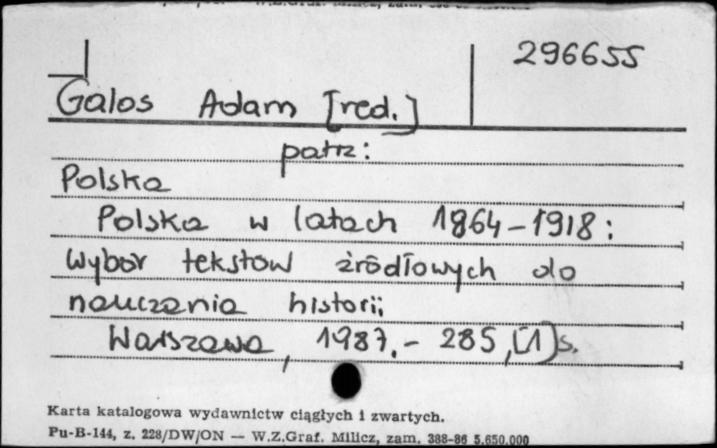 W.Z.Graf. Milicz, zam.
296655
Galos Adam [red.]
patrz:
Polska
Polska w latach 1864-1918:
wybór tekstów źródłowych do
nauczania historii,
Warszawa, 1987.- 285,[1]s.
Karta katalogowa wydawnictw ciągłych i zwartych.
Pu-B-144, z. 228/DW/ON — W.Z.Graf. Milicz, zam. 388-86 5.650.000